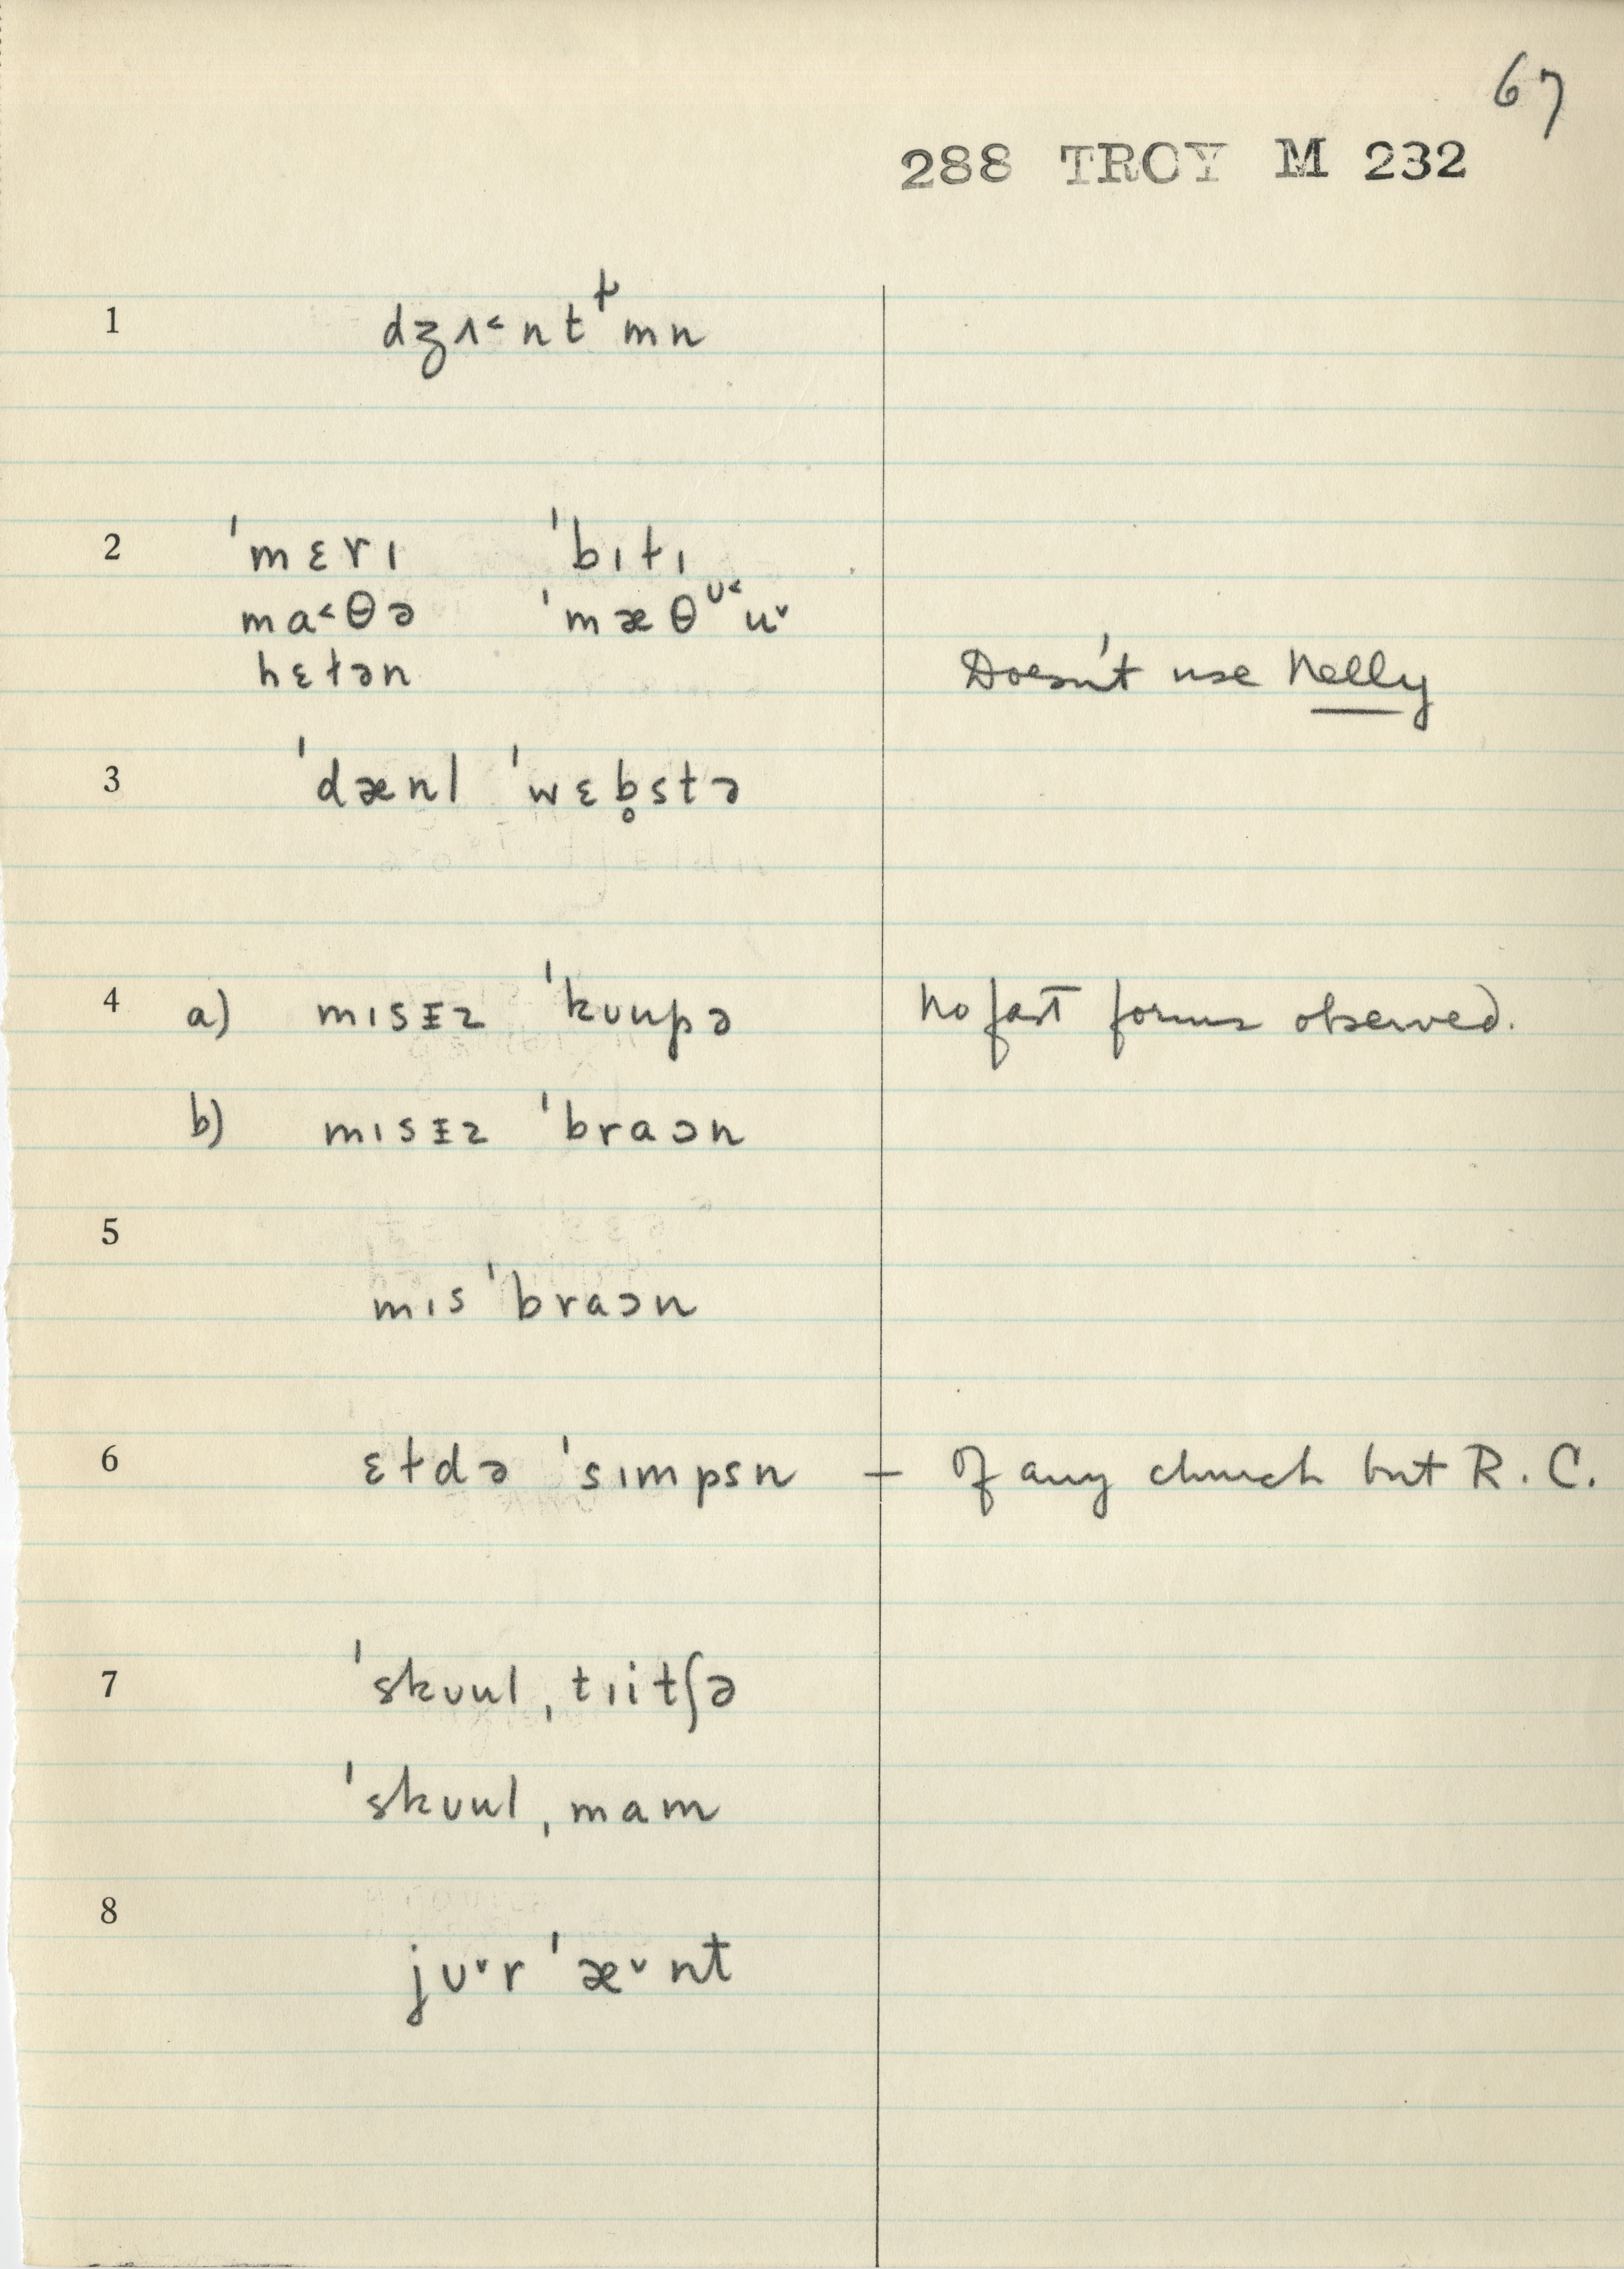 67
288 TROY M 232
1 dʒʌ˂ntᵗmn
2 ˈmɛrɪ ˈbɪtɪ
ma˂θə ˈmæθᶷ˂u˅
hɛɫən Doesn't use Nelly
3 ˈdænl ˈwɛb̥stə
4 a) mɪsɪz ˈkʊupə No fast forms observed.
b) mɪsɪz ˈbraɔn
5
mɪs ˈbraɔn
6 ɛɫdə ˈsɪmpsn – Of any church but R.C.
7 ˈskʊul ˌtɪitʃə
ˈskʊul ˌmam
8
jʊ˅r ˈæ˅nt